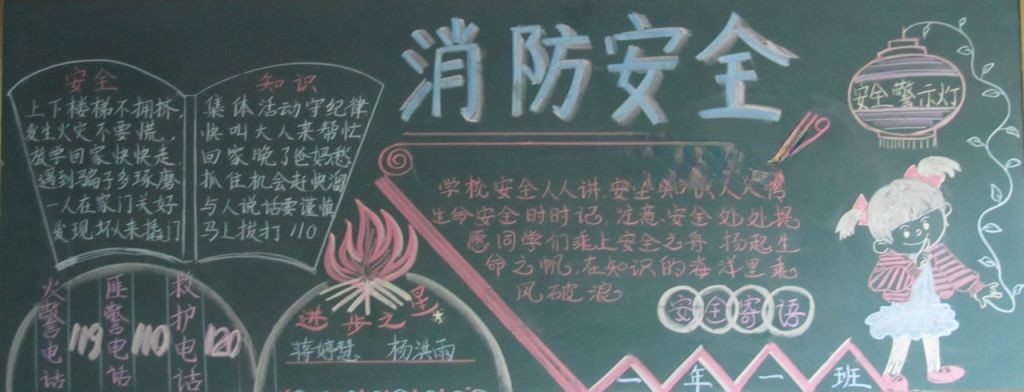 消防安全
安全 知识
上下楼梯不拥挤，
集体活动守纪律
发生火灾不要慌，
快叫大人来帮忙
放学回家快快走
回家晚了爸妈愁
遇到骗子多琢磨
抓住机会赶快溜
一人在家门关好
与人说话要谨慎
发现坏人来撬门
马上拨打110
安全警示灯
学校安全人人讲.安全知识人人
生命安全时时记.注意安全处处提
愿同学们乘上安全之舟.扬起生
命之帆.在知识的海洋里乘
风破浪.
安全寄语
火警电话 119
匪警电话 110
救护电话 120
进步之星
蒋婷慧 杨洪雨
一年一班